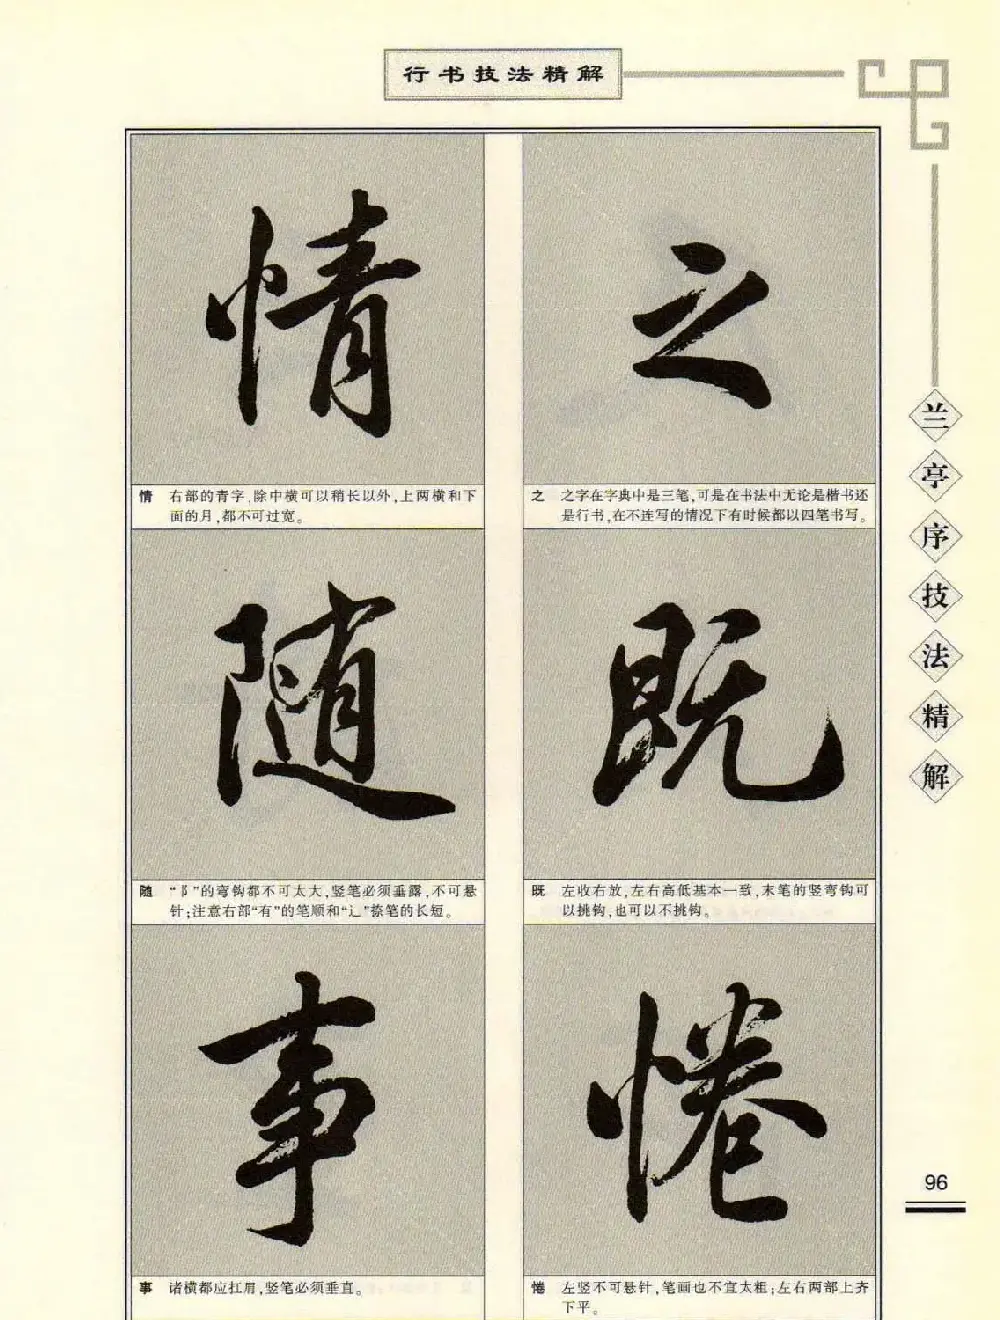 行书技法精解
情
情 右部的青字,除中横可以稍长以外,上两横和下
面的月,都不可过宽。
随
随 “阝”的弯钩都不可太大,竖笔必须垂露,不可悬
针;注意右部“有”的笔顺和“辶”捺笔的长短。
事
事 诸横都应扛肩,竖笔必须垂直。
之
之 之字在字典中是三笔,可是在书法中无论是楷书还
是行书,在不连写的情况下有时候都以四笔书写。
既
既 左收右放,左右高低基本一致,末笔的竖弯钩可
以挑钩,也可以不挑钩。
惓
惓 左竖不可悬针,笔画也不宜太粗;左右两部上齐
下平。
兰亭序技法精解
96